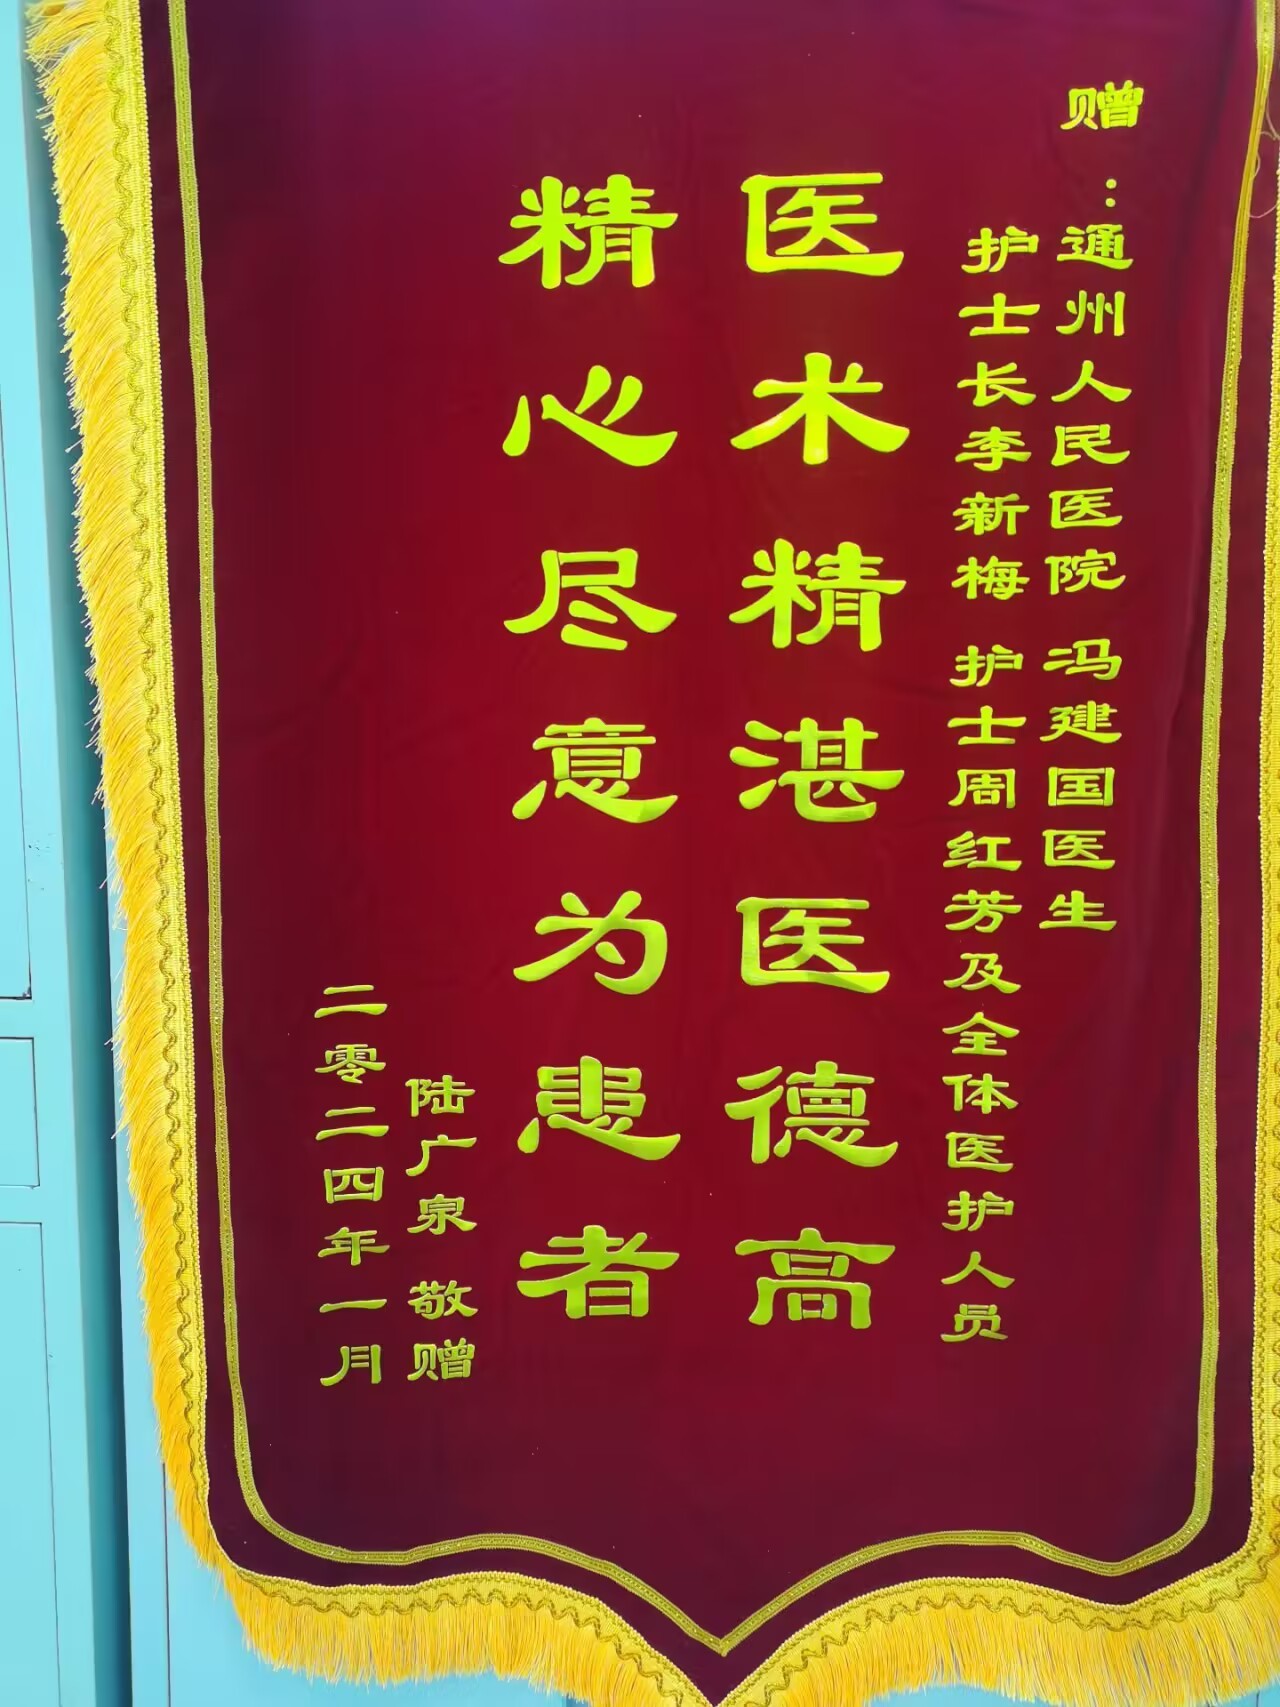 赠：通州人民医院 冯建国医生
护士长李新梅 护士周红芳及全体医护人员
医术精湛医德高
精心尽意为患者
陆广泉 敬赠
二零二四年一月